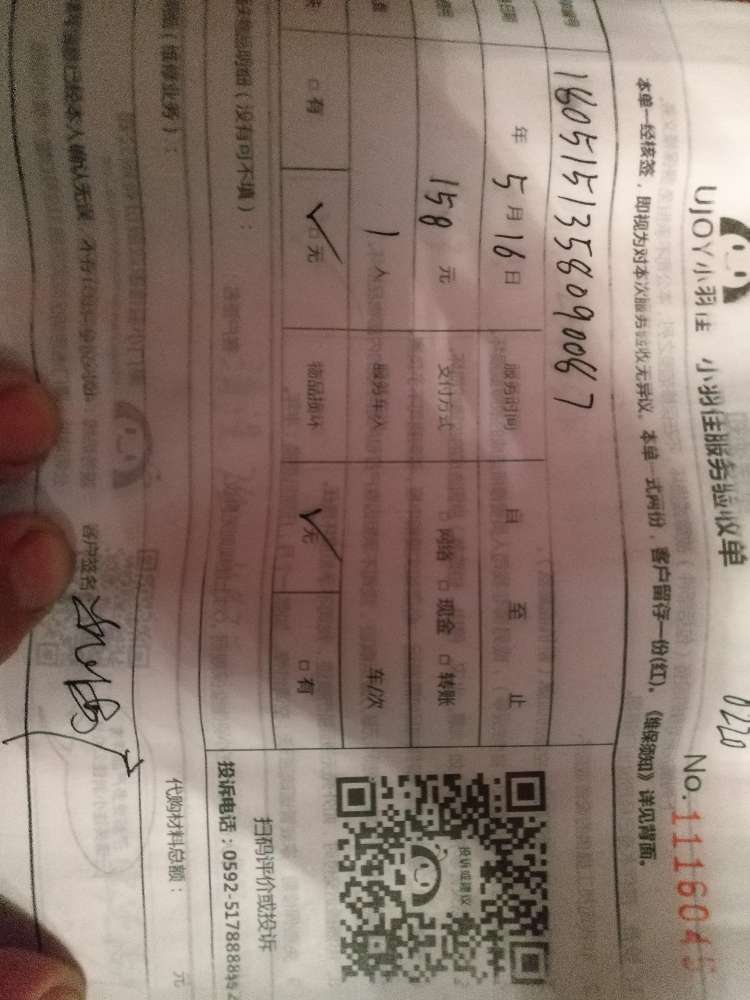 0220
UJOY小羽佳 小羽佳服务验收单
No. 1116045
本单一经核签，即视为对本次服务验收无异议。本单一式两份，客户留存一份(红)。《维保须知》详见背面。
1605151358090067
年 5月16日 服务时间 自 至 止
158 元 支付方式 □ 网络 □ 现金 □ 转账
1 人 服务车次 车/次
□ 有 ✓ □ 无 物品损坏 ✓ 无 □ 有
投诉或建议
扫码评价或投诉
物品明细（没有可不填）：
投诉电话：0592-5178888转2
（维修业务）：
代购材料总额： 元
已经本人确认无误
客户签名